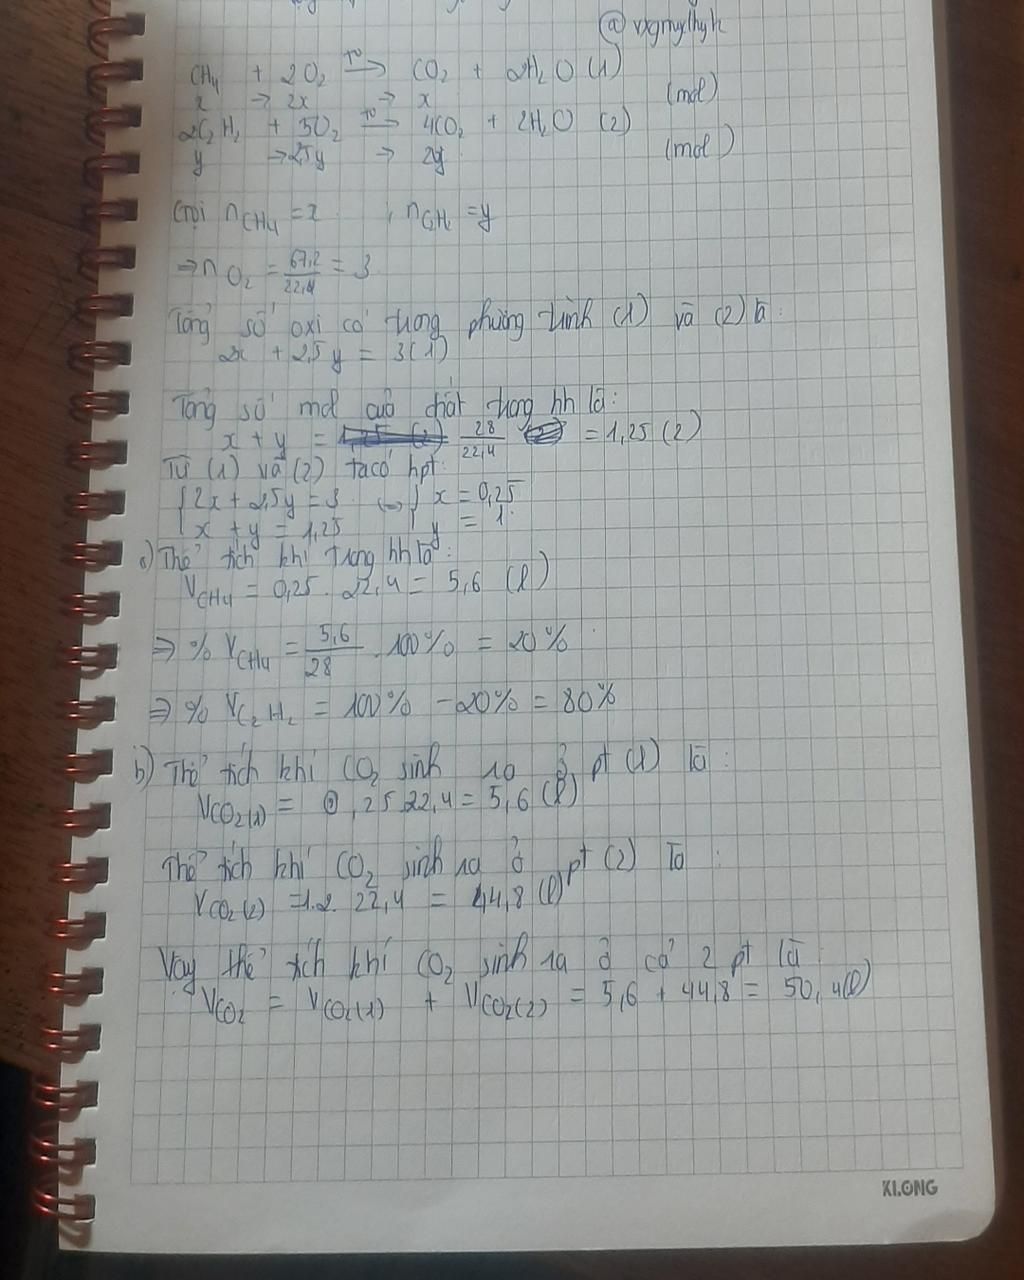 @ vxgmylhyh
CH₄ + 2O₂ →(t⁰) CO₂ + 2H₂O (1)
x → 2x → x (mol)
2C₂H₂ + 5O₂ →(t⁰) 4CO₂ + 2H₂O (2)
y → 2,5y → 2y (mol)
Gọi nCH₄ = x , nC₂H₂ = y
⇒ nO₂ = 67,2/22,4 = 3
Tổng số oxi có trong phương trình (1) và (2) là:
2x + 2,5y = 3 (1)
Tổng số mol của chất trong hh là:
x + y = 28/22,4 = 1,25 (2)
Từ (1) và (2) ta có hpt:
{ 2x + 2,5y = 3 ⇔ { x = 0,25
{ x + y = 1,25 { y = 1
a) Thể tích khí trong hh là:
VCH₄ = 0,25 . 22,4 = 5,6 (l)
⇒ % VCH₄ = 5,6/28 . 100% = 20%
⇒ % VC₂H₂ = 100% - 20% = 80%
b) Thể tích khí CO₂ sinh ra ở pt (1) là:
VCO₂(1) = 0,25.22,4 = 5,6 (l)
Thể tích khí CO₂ sinh ra ở pt (2) là:
VCO₂(2) = 1.2. 22,4 = 44,8 (l)
Vậy thể tích khí CO₂ sinh ra ở cả 2 pt là:
VCO₂ = VCO₂(1) + VCO₂(2) = 5,6 + 44,8 = 50,4(l)
KLONG